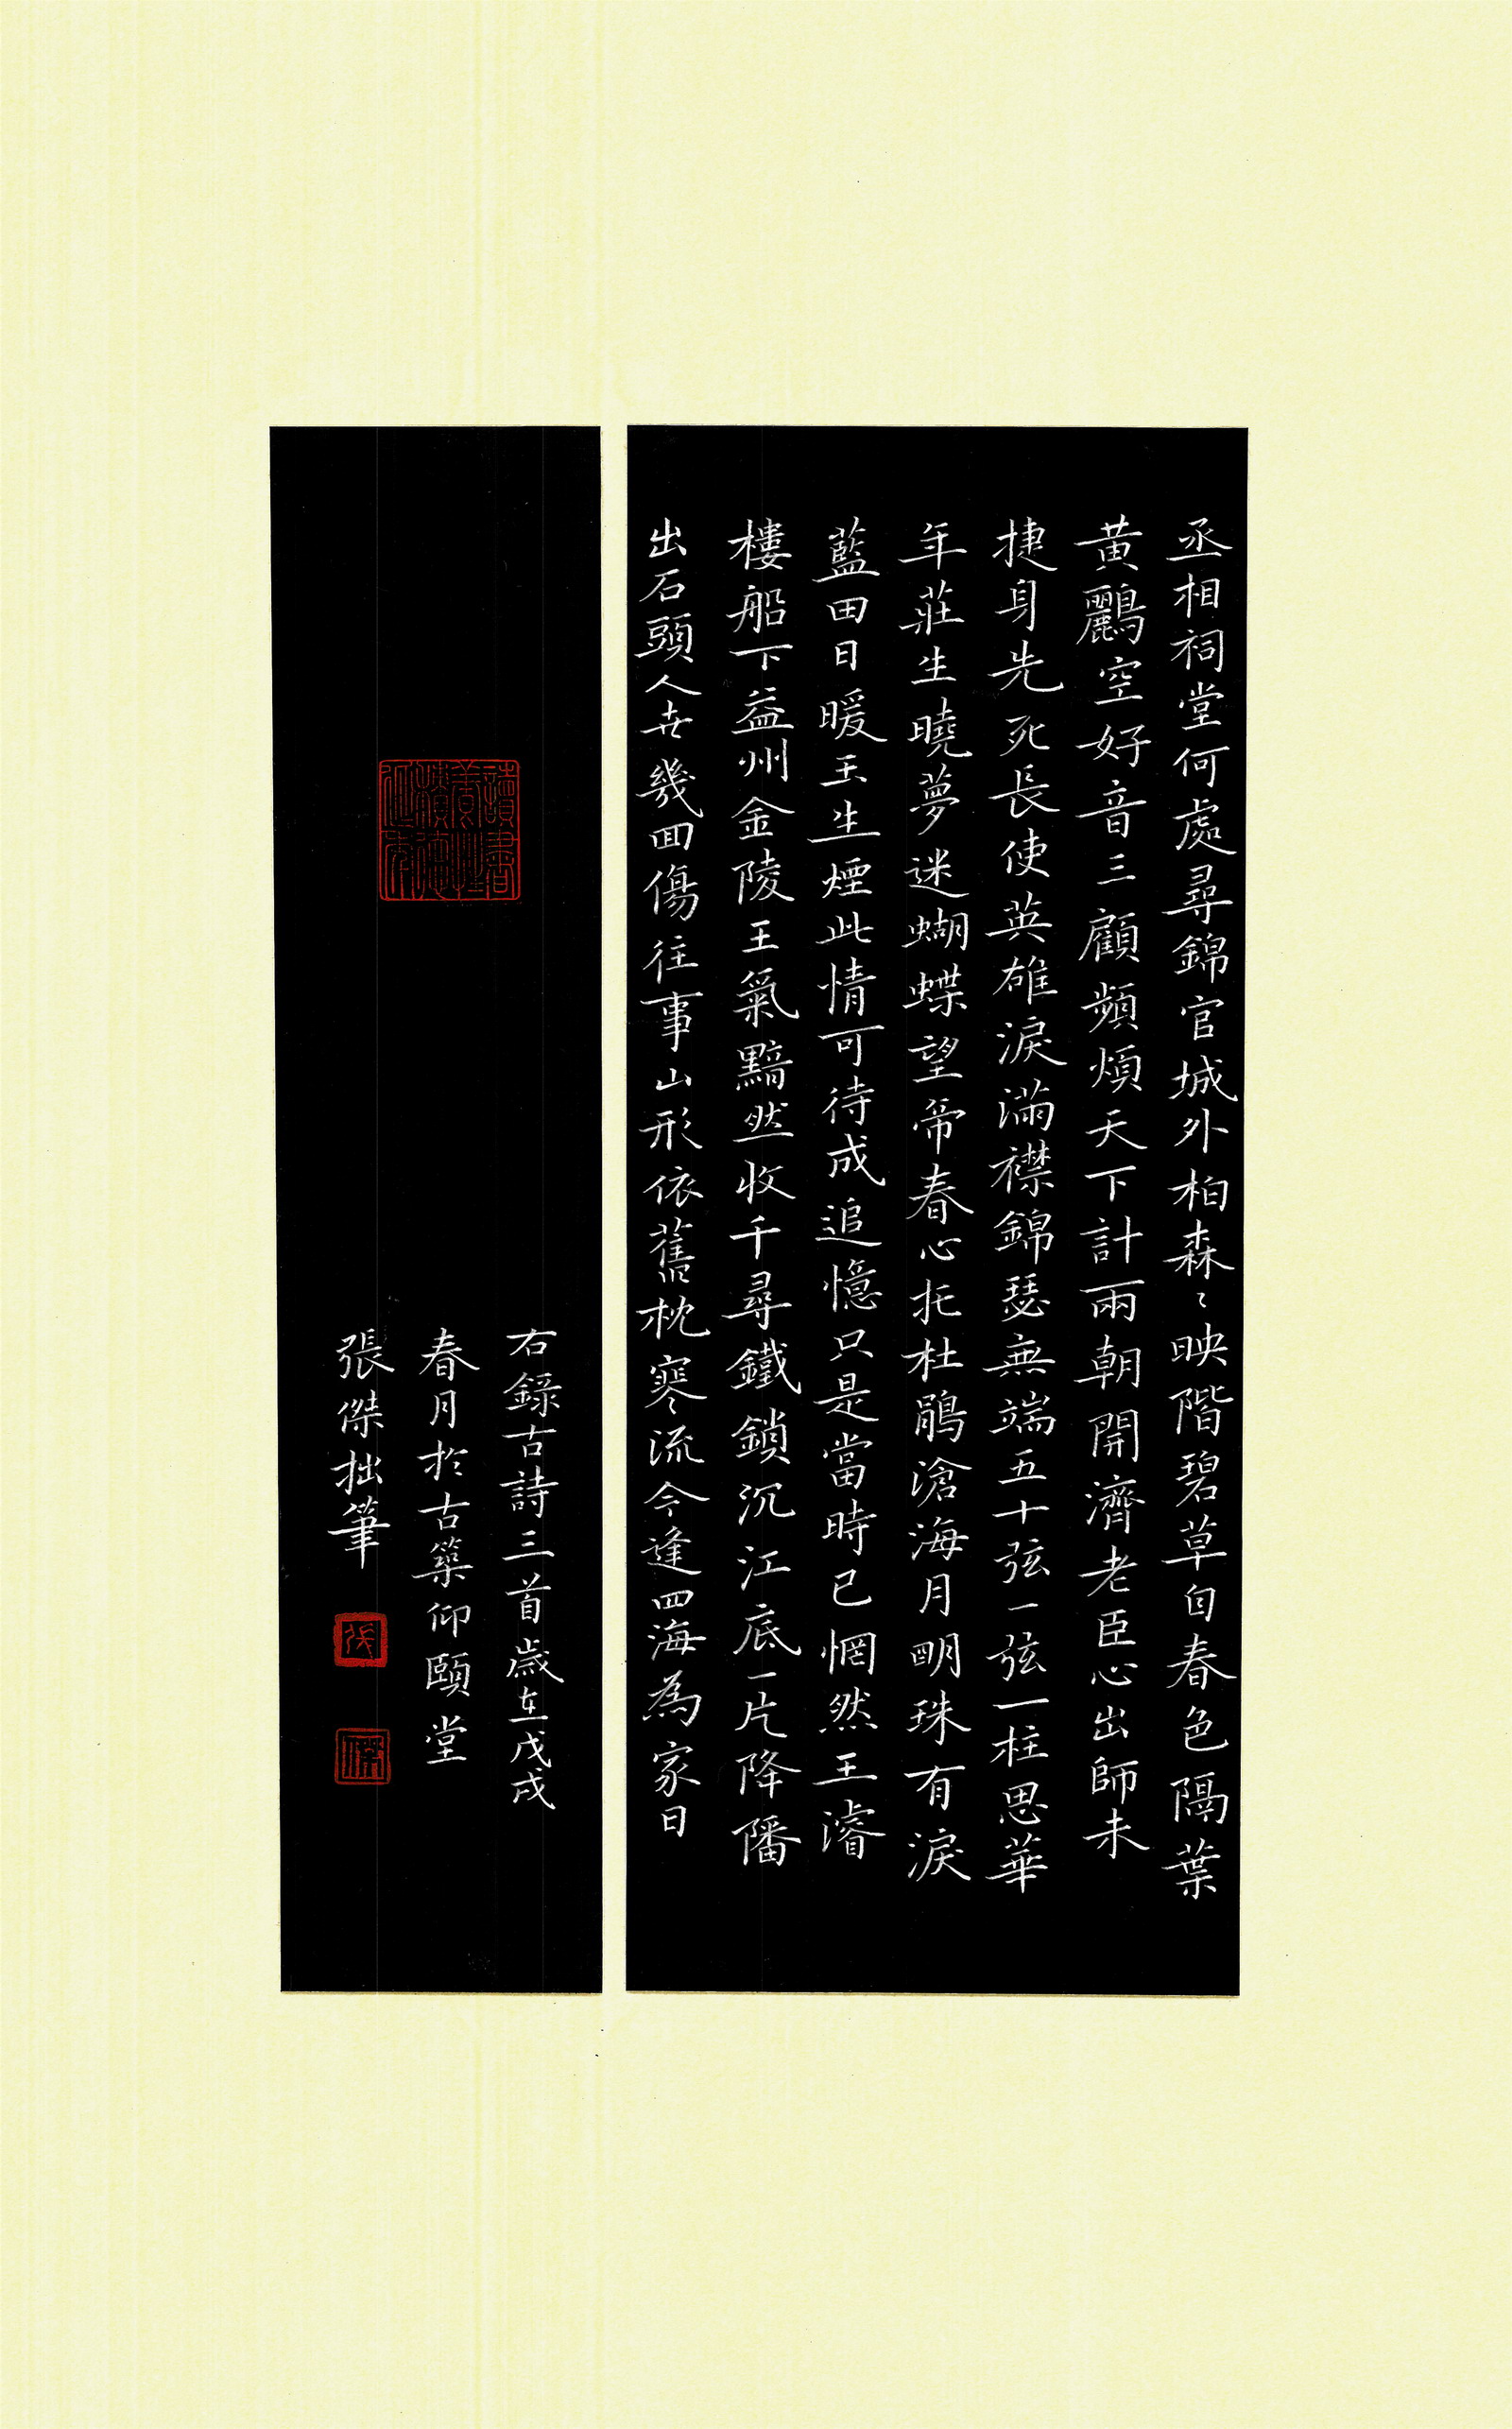 丞相祠堂何處尋錦官城外柏森〻映階碧草自春色隔葉
黃鸝空好音三顧頻煩天下計兩朝開濟老臣心出師未
捷身先死長使英雄淚滿襟錦瑟無端五十弦一弦一柱思華
年莊生曉夢迷蝴蝶望帝春心托杜鵑滄海月明珠有淚
藍田日暖玉生煙此情可待成追憶只是當時已惘然王濬
樓船下益州金陵王氣黯然收千尋鐵鎖沉江底一片降旛
出石頭人世幾回傷往事山形依舊枕寒流今逢四海為家日
右錄古詩三首歲在戊戌
春月於古築仰頤堂
張傑拙筆
張
傑